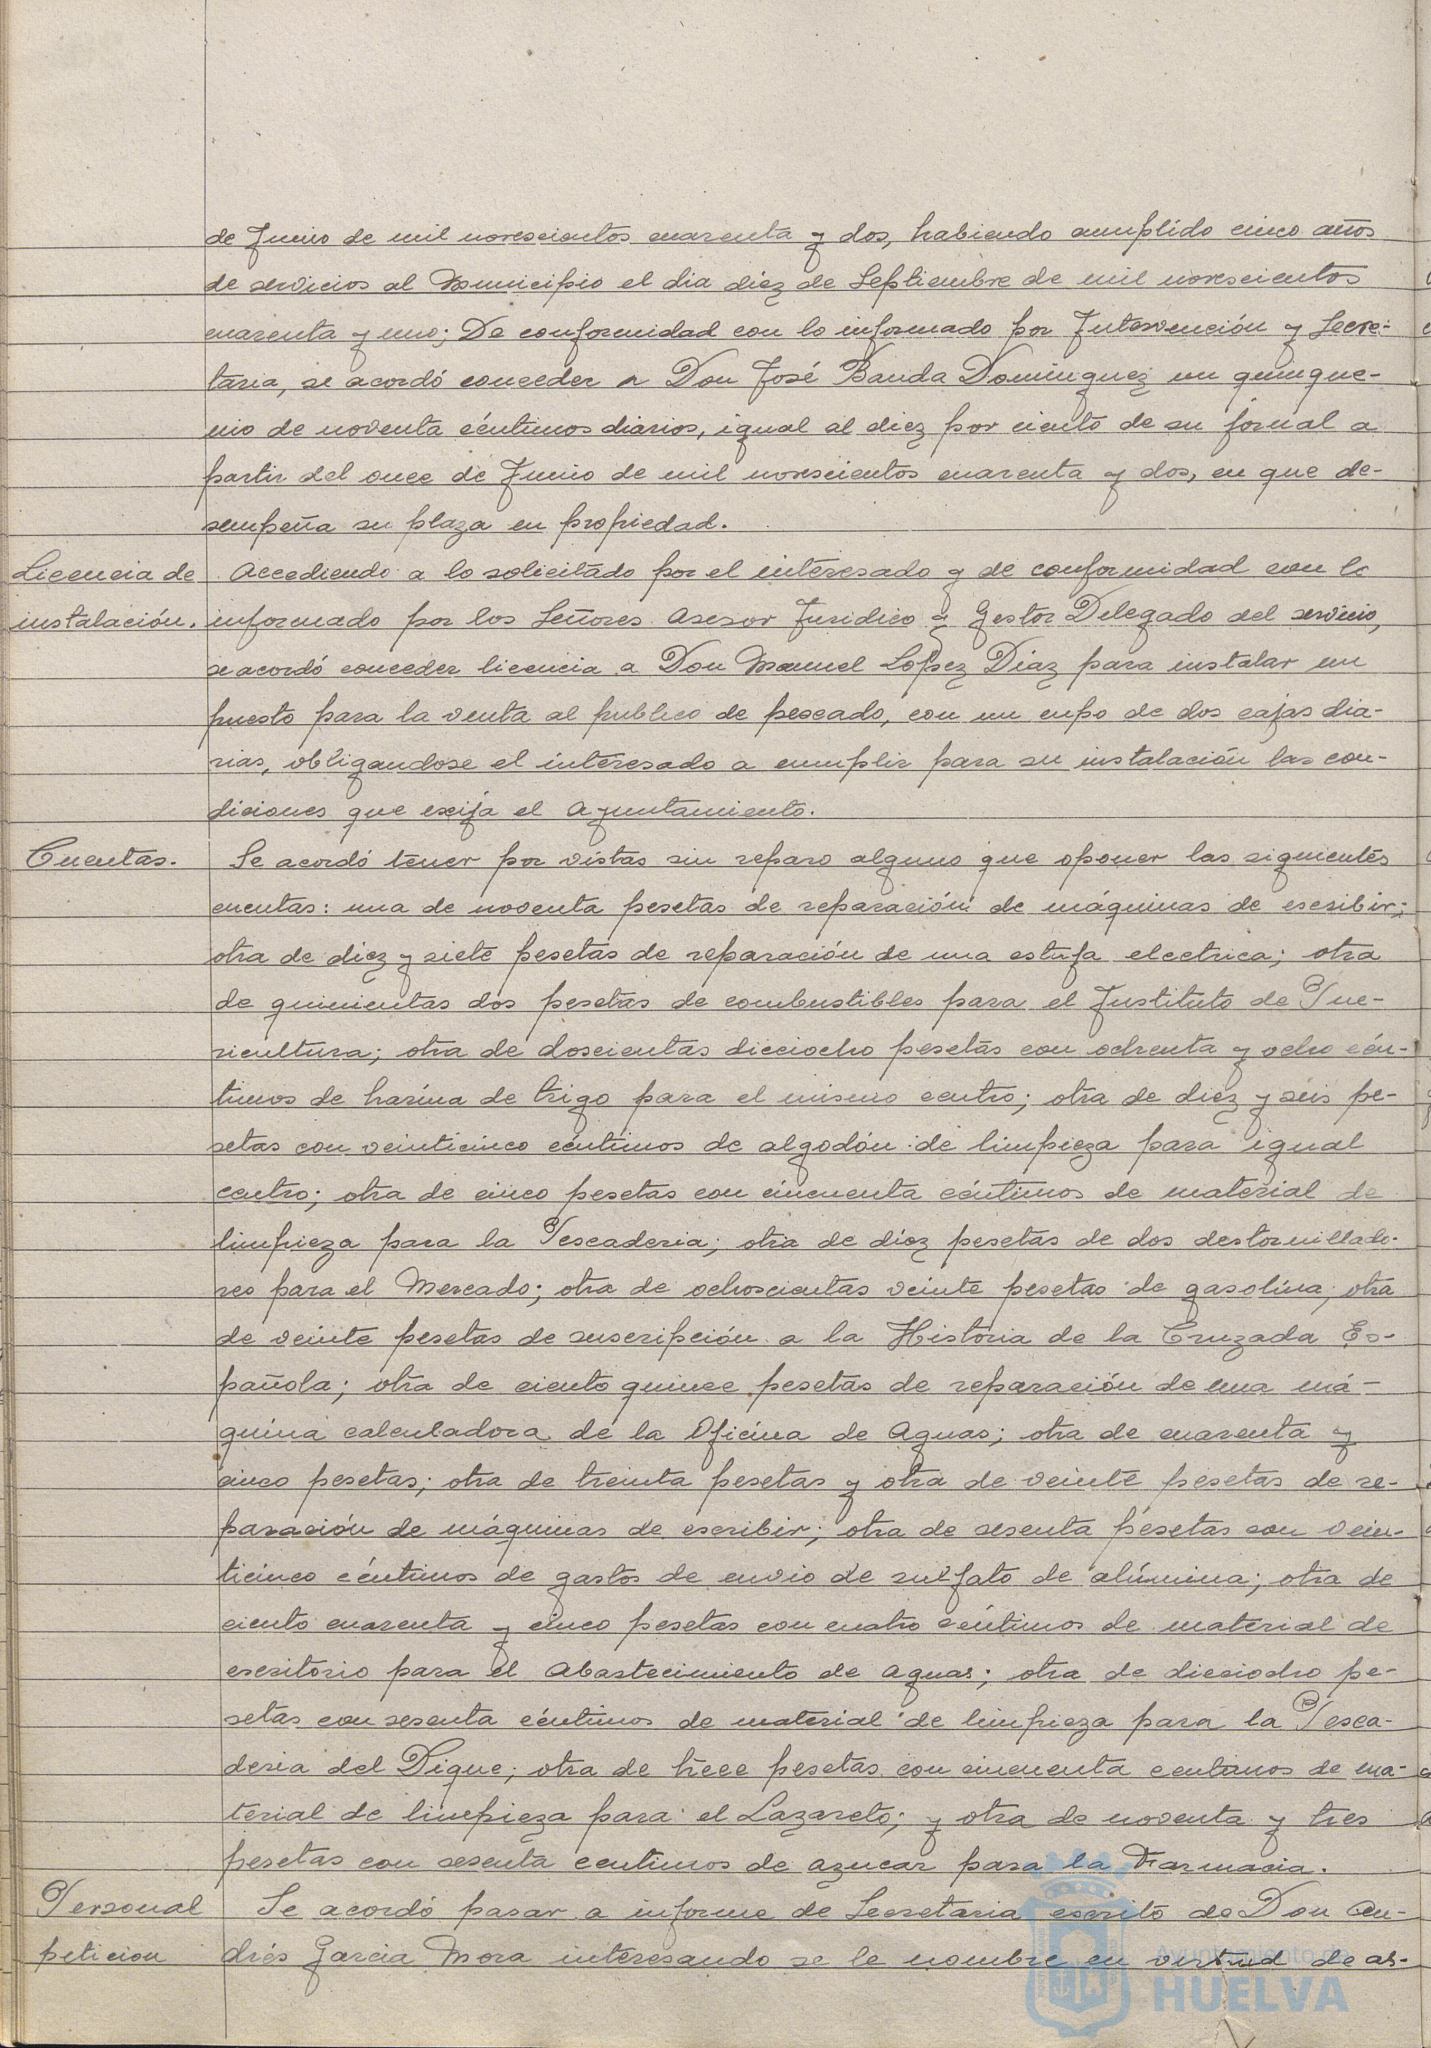 de Junio de mil novescientos cuarenta y dos, habiendo cumplido cinco años
de servicios al Municipio el dia diez de Septiembre de mil novescientos
cuarenta y uno; De conformidad con lo informado por Intervención y Secre-
taria, se acordó conceder a Don José Banda Dominguez un quinque-
nio de noventa céntimos diarios, igual al diez por ciento de su jornal a
partir del once de Junio de mil novescientos cuarenta y dos, en que de-
sempeña su plaza en propiedad.
Licencia de instalación.
Accediendo a lo solicitado por el interesado y de conformidad con lo
informado por los Señores Asesor Juridico y Gestor Delegado del servicio,
se acordó conceder licencia a Don Manuel López Diaz para instalar un
puesto para la venta al publico de pescado, con un cupo de dos cajas dia-
rias, obligandose el interesado a cumplir para su instalación las con-
diciones que exija el Ayuntamiento.
Cuentas.
Se acordó tener por vistas sin reparo alguno que oponer las siguientes
cuentas: una de noventa pesetas de reparación de máquinas de escribir;
otra de diez y siete pesetas de reparación de una estufa electrica; otra
de quinientas dos pesetas de combustibles para el Instituto de Pue-
ricultura; otra de doscientas dieciocho pesetas con ochenta y ocho cén-
timos de harina de trigo para el mismo centro; otra de diez y seis pe-
setas con veinticinco céntimos de algodón de limpieza para igual
centro; otra de cinco pesetas con cincuenta céntimos de material de
limpieza para la Pescaderia; otra de diez pesetas de dos destornillado-
res para el Mercado; otra de ochoscientas veinte pesetas de gasolina; otra
de veinte pesetas de suscripción a la Historia de la Cruzada Es-
pañola; otra de ciento quince pesetas de reparación de una má-
quina calculadora de la Oficina de Aguas; otra de cuarenta y
cinco pesetas; otra de treinta pesetas y otra de veinte pesetas de re-
paración de máquinas de escribir; otra de sesenta pesetas con vein-
ticinco céntimos de gastos de envio de sulfato de alúmina; otra de
ciento cuarenta y cinco pesetas con cuatro céntimos de material de
escritorio para el Abastecimiento de Aguas; otra de dieciocho pe-
setas con sesenta céntimos de material de limpieza para la Pesca-
deria del Dique; otra de trece pesetas con cincuenta centimos de ma-
terial de limpieza para el Lazareto; y otra de noventa y tres
pesetas con sesenta centimos de azucar para la Farmacia.
Personal peticion
Se acordó pasar a informe de Secretaria escrito de Don An-
drés Garcia Mora interesando se le nombre en virtud de as-
Ayuntamiento de
HUELVA